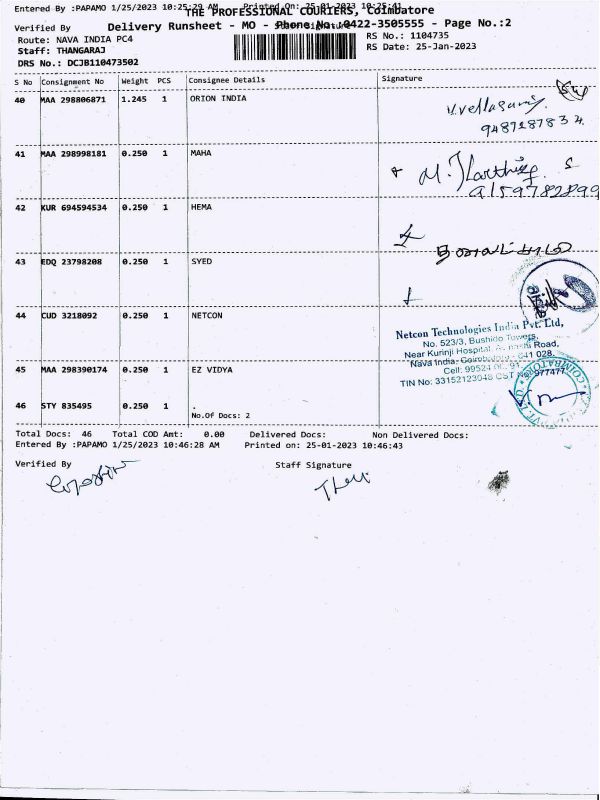 Entered By :PAPAMO 1/25/2023 10:25:29 AM Printed On: 25-01-2023 10:25:41
THE PROFESSIONAL COURIERS, Coimbatore
Verified By Staff Signature
Delivery Runsheet - MO - Phone No.:0422-3505555 - Page No.:2
Route: NAVA INDIA PC4 RS No.: 1104735
Staff: THANGARAJ RS Date: 25-Jan-2023
DRS No.: DCJB110473502
S No Consignment No Weight PCS Consignee Details Signature
40 MAA 298806871 1.245 1 ORION INDIA
9487287834
41 MAA 298998181 0.250 1 MAHA
M. Karthi S
9159782899
42 KUR 694594534 0.250 1 HEMA
43 EDQ 23798208 0.250 1 SYED
44 CUD 3218092 0.250 1 NETCON
Netcon Technologies India Pvt. Ltd,
No. 523/3, Bushido Towers,
Near Kurinji Hospital, Road,
Nava India, Coimbatore - 641 028.
45 MAA 298390174 0.250 1 EZ VIDYA
TIN No: 33152123048 CST
46 STY 835495 0.250 1 .
No.Of Docs: 2
Total Docs: 46 Total COD Amt: 0.00 Delivered Docs: Non Delivered Docs:
Entered By :PAPAMO 1/25/2023 10:46:28 AM Printed on: 25-01-2023 10:46:43
Verified By Staff Signature